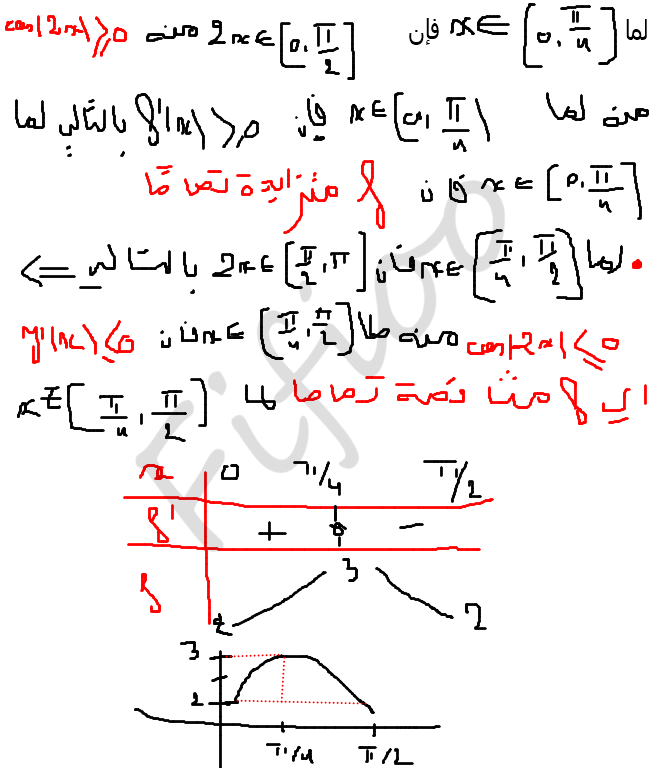 لما x∈[0,π/4] فإن 2x∈[0,π/2] منه cos(2x)≥0
منه لما x∈[0,π/4] فإن f'(x)≥0 بالتالي لما
x∈[0,π/4] فإن f متزايدة تماما
• لما x∈[π/4,π/2] فإن 2x∈[π/2,π] بالتالي <=
cos(2x)≤0 منه لما x∈[π/4,π/2] فإن f'(x)≤0
اي f متناقصة تماما لما x∈[π/4,π/2]
x 0 π/4 π/2
f' + 0 -
f 2 3 2
3
2
π/4 π/2
Fifioo